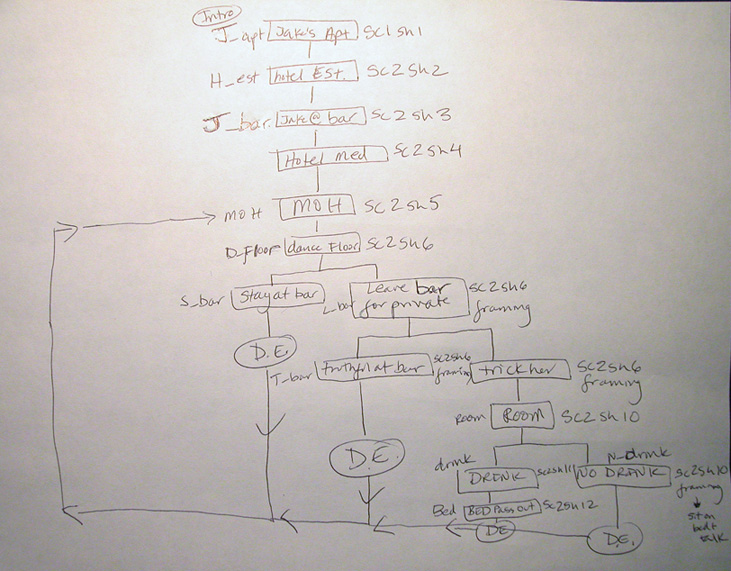 Intro
J_apt Jake's Apt Sc1sh1
H_est hotel Est. Sc2sh2
J_bar Jake@bar Sc2sh3
Hotel Med Sc2sh4
MOH MOH Sc2sh5
D_Floor dance Floor Sc2sh6
S_bar Stay at bar
L_bar Leave bar
for private
Sc2sh6
framing
D.E.
T_bar truthful at bar
sc2sh6
framing
trick her
sc2sh6
framing
Room ROOM Sc2sh10
D.E.
drink DRINK sc2sh11
N_drink NO DRINK
Sc2sh10
framing
sit on
bed +
Bed BED Pass Out Sc2sh12
DE
D.E.